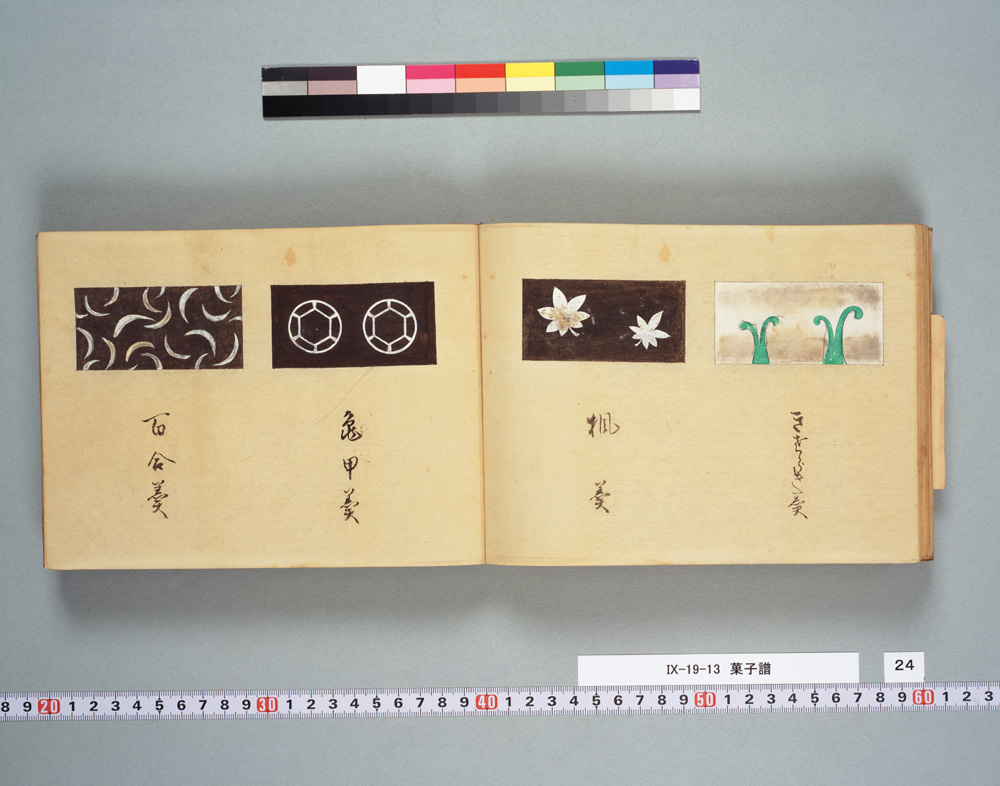 さわらび羹
楓羹
亀甲羹
百合羹
IX-19-13 菓子譜
24
8 9 20 1 2 3 4 5 6 7 8 9 30 1 2 3 4 5 6 7 8 9 40 1 2 3 4 5 6 7 8 9 50 1 2 3 4 5 6 7 8 9 60 1 2 3